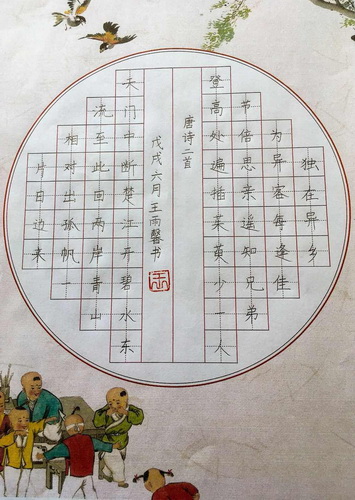 独在异乡
为异客每逢佳
节倍思亲遥知兄弟
登高处遍插茱萸少一人
唐诗二首
戊戌六月王雨馨书
天门中断楚江开碧水东
流至此回两岸青山
相对出孤帆一
片日边来